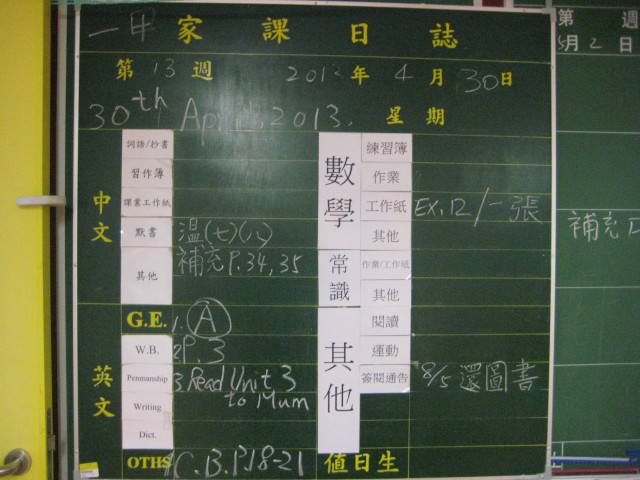 一甲 家課日誌
第13週 2013年4月30日
30th April, 2013. 星期
中文
詞語/抄書
習作簿
課業工作紙
默書 溫(七)(八)
其他 補充P.34,35
英文
G.E. 1. Ⓐ
W.B. 2P.3
Penmanship 3 Read Unit 3
Writing to Mum
Dict.
OTHS 4C.B.P.18-21
數學
練習簿
作業
工作紙 EX.12/一張
其他
常識
作業/工作紙
其他
其他
閱讀
運動
簽閱通告 8/5 還圖書
值日生
第 週
5月2日
補充